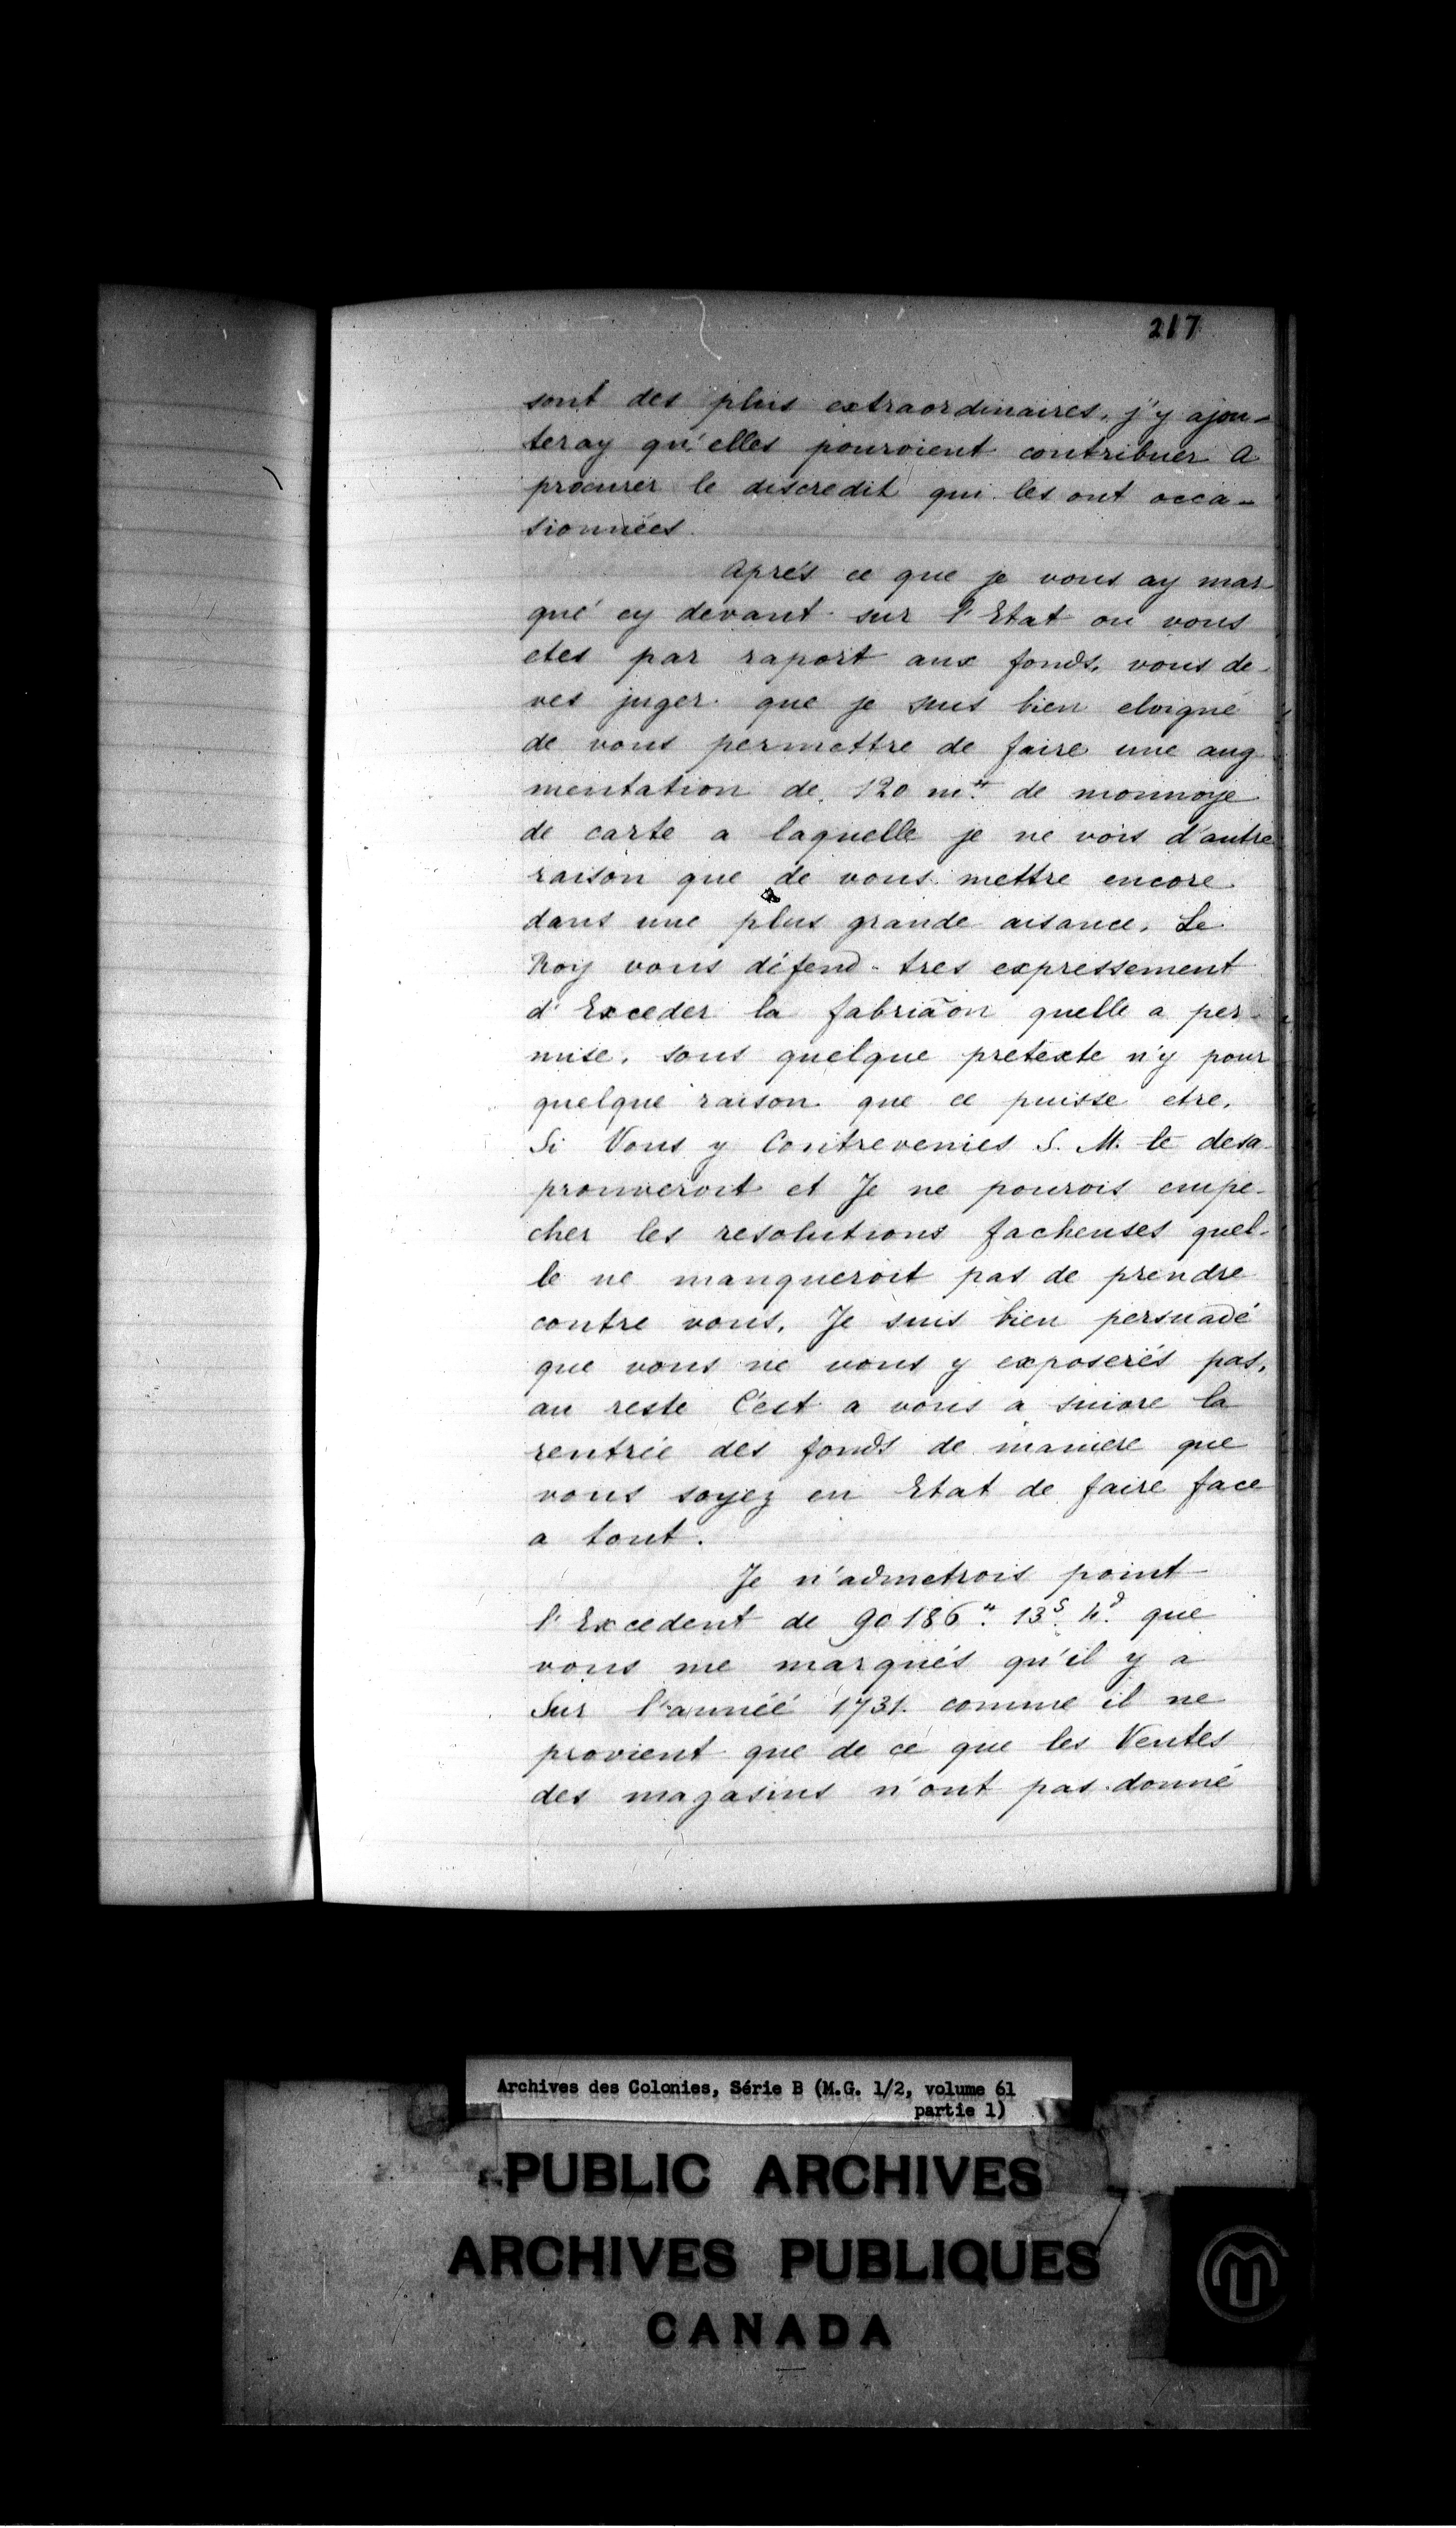 217
sont des plus extraordinaires, j'y ajou-
teray qu'elles pouroient contribuer a
procurer le discredit qui les ont occa-
sionnées.
Aprés ce que je vous ay mar
qué cy devant sur l'Etat ou vous
etes par raport aux fonds, vous de-
vés juger que je suis bien eloigné
de vous permettre de faire une aug
mentation de 120 m.# de monnoye
de carte a laquelle je ne vois d'autre
raison que de vous mettre encore
dans une plus grande aisance, Le
Roy vous défend tres expressement
d'Exceder la fabriãon quelle a per-
mise, sous quelque pretexte n'y pour
quelque raison que ce puisse etre,
Si Vous y Contrevenies S. M. le desa-
prouveroit et Je ne pourois empe-
cher les resolutions facheuses quel-
le ne manqueroit pas de prendre
contre vous, Je suis bien persuadé
que vous ne vous y exposerés pas,
au reste C'est a vous a suivre la
rentrée des fonds de maniere que
vous soyez en Etat de faire face
a tout.
Je n'admetrois point
l'Excedent de 90186.# 13.s 4.d que
vous me marqués qu'il y a
Sur l'année 1731. comme il ne
provient que de ce que les Ventes
des magasins n'ont pas donné
Archives des Colonies, Série B (M.G. 1/2, volume 61
partie 1)
PUBLIC ARCHIVES
ARCHIVES PUBLIQUES
CANADA